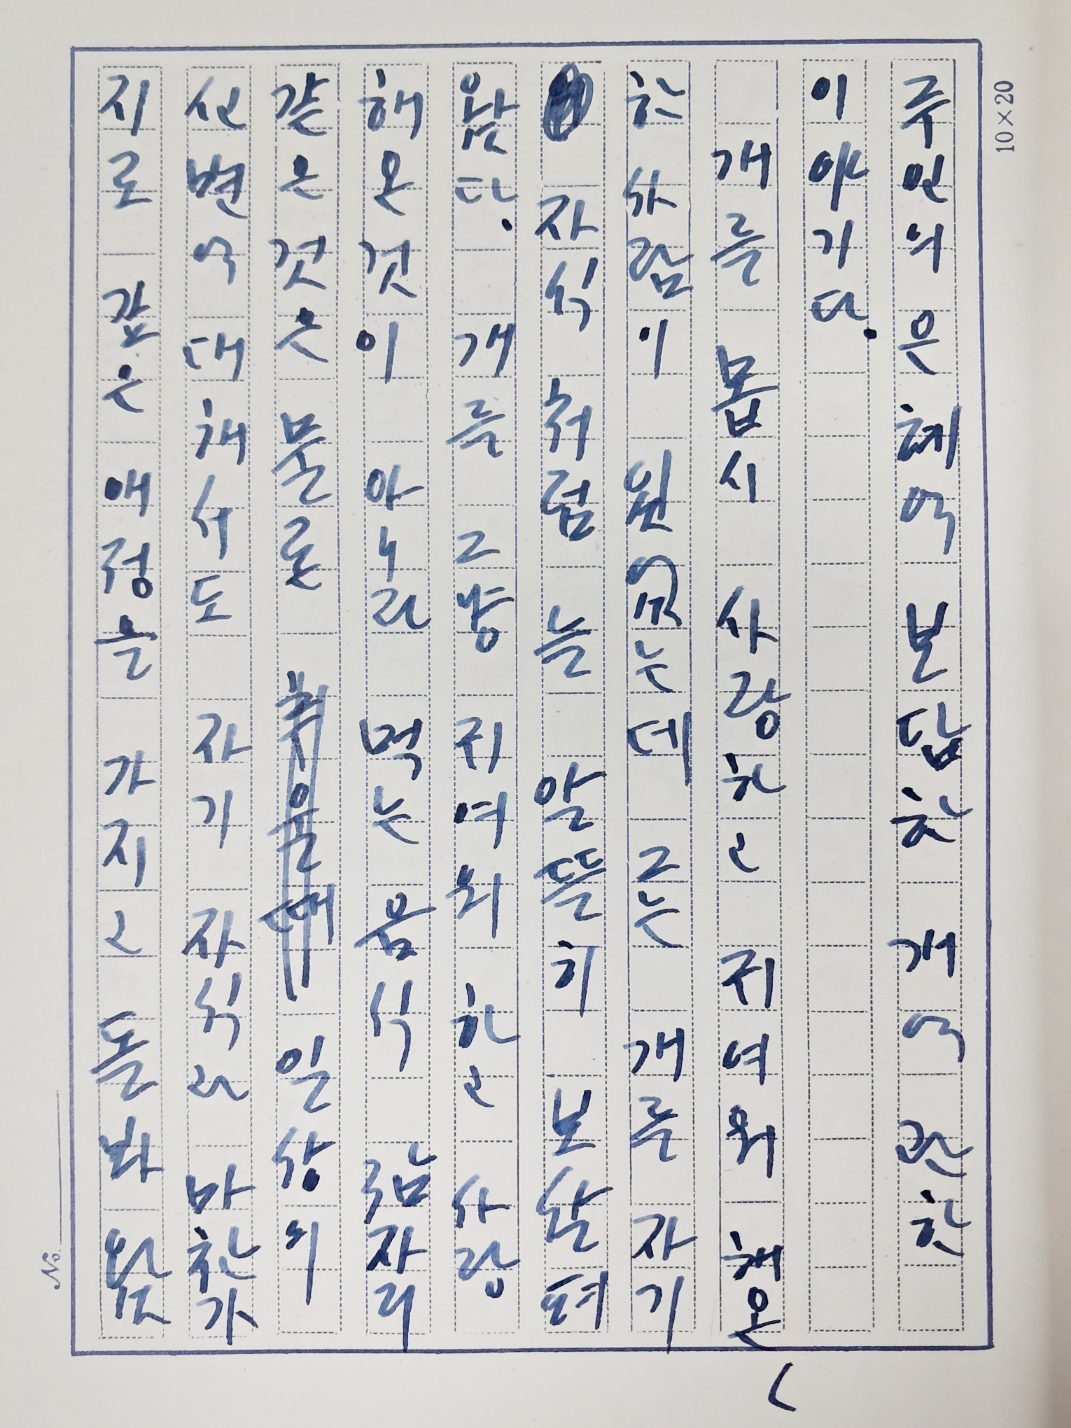 주인의 은혜에 보답한 개에 관한
이야기다.
개를 몹시 사랑하고 귀여워 해온
한 사람이 있었는데 그는 개를 자기
자식 처럼 늘 알뜰히 보살펴
왔다. 개를 그냥 귀여워 하고 사랑
해 온 것이 아니라 먹는 음식 잠자리
같은 것은 물론 일상의
신변에 대해서도 자기 자식과 마찬가
지로 같은 애정을 가지고 돌봐 왔었
10×20
No.